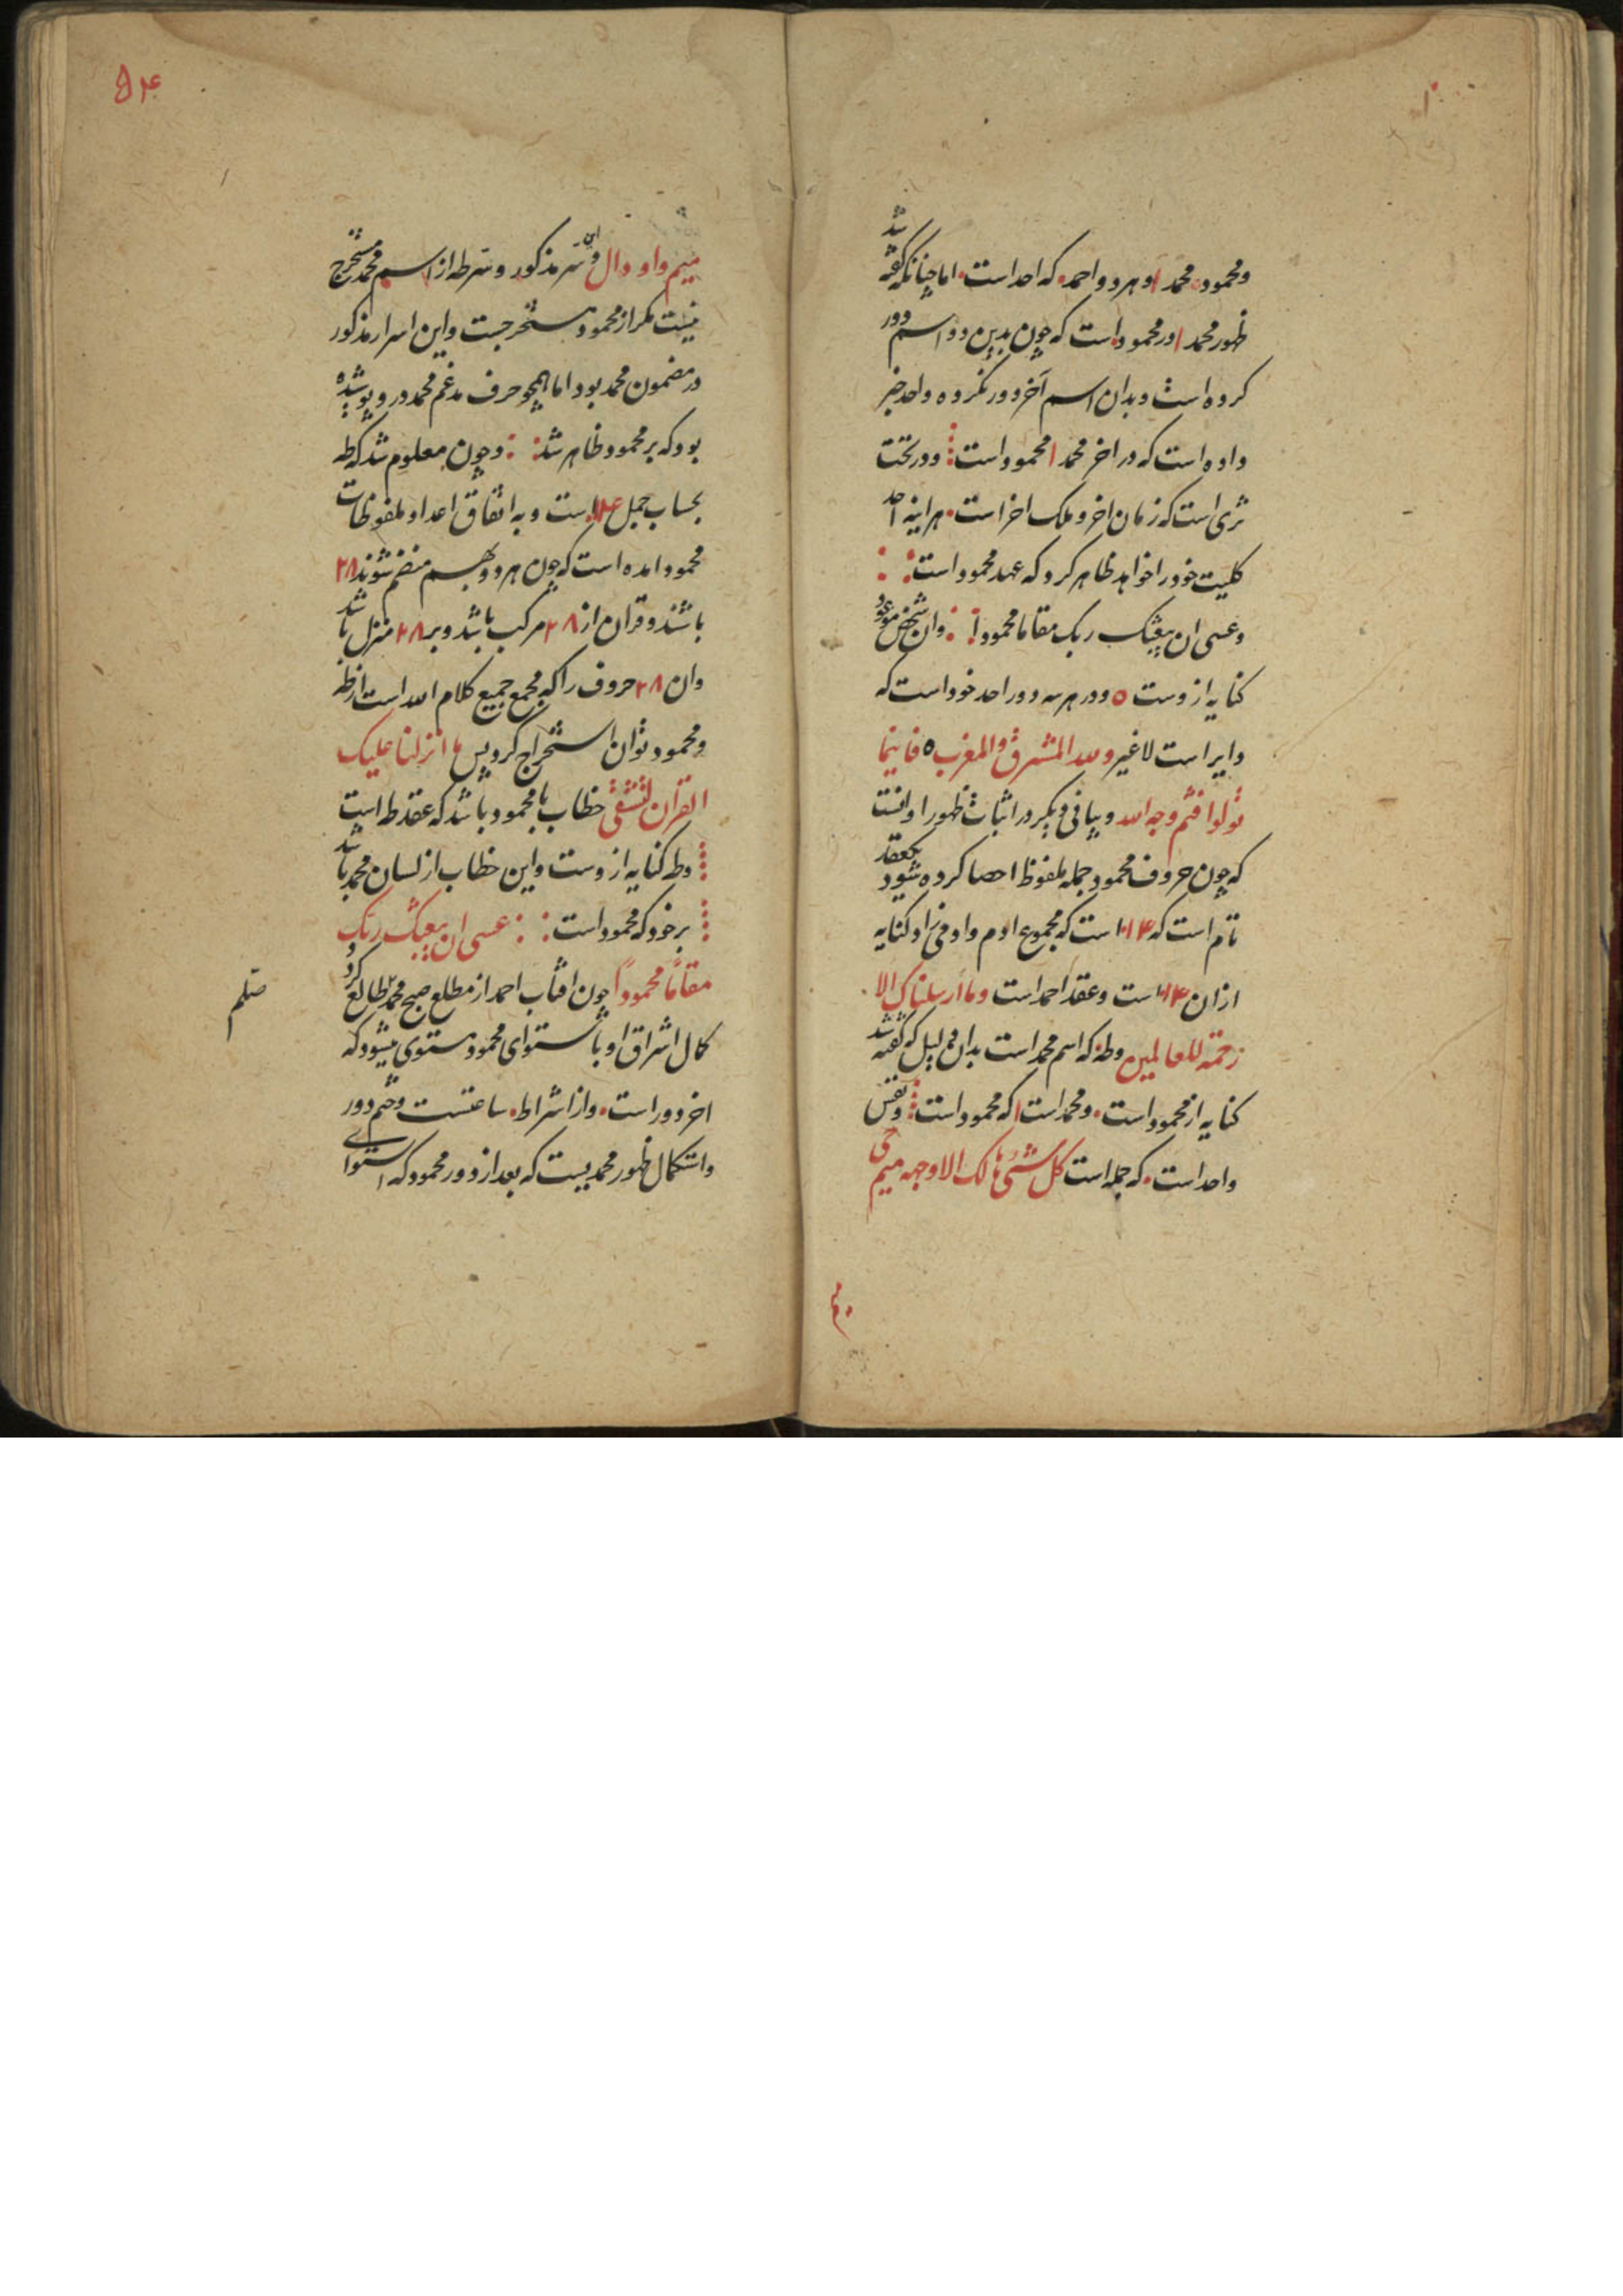 ومحمود محمد ا وهر دو احمد که احد است اما چنانکه گفته شد
ظهور محمد ا در محمود است که چون بدین دو اسم دور
کرده است و بدان اسم آخر دور نکرده واحد خبر
داده است که در اخر محمد ا محمود است ودر تحت
ثری است که زمان اخر و ملک اخر است هراینه احد
کلیت خود را خواهد ظاهر کرد که عهد محمود است
وعسی ان یبعثک ربک مقاما محمودا وان شخص موعود
کنایه ازوست ٥ ودر هر سه دور احد خود است که
دایر است لاغیر ولله المشرق والمغرب ٥ فاینما
تولوا فثم وجه الله وبیانی دیگر در اثبات ظهور او انست
که چون حروف محمود جمله ملفوظ احصا کرده شود بعقد
تام است که ۱۴ است که مجموع ادم واو فی زاد کنایه
ازان ۱۴ است وعقد احمد است وما ارسلناک الا
رحمة للعالمین وطه که اسم محمد است بدان دلیل که گفته شد
کنایه از محمود است ومحمد است ا که محمود است ونفس
واحد است که جمله است کل شئ هالک الا وجهه میم حی
میم واو دال واین سر مذکور وسر طه از اسم محمد مستخرج
نیست مگر از محمود مستخرجست واین اسرار مذکور
در مضمون محمد بود اما همچو حرف مدغم محمد درو پوشیده
بود که بر محمود ظاهر شد وچون معلوم شد که طه
بحساب جمل ۱۴ است وبه اتفاق اعداد ملفوظات
محمود امده است که چون هر دو بهم منضم شوند ۲۸
باشند وقران از ۲۸ مرکب باشد وبر ۲۸ منزل باشد
وان ۲۸ حروف را که مجمع جمیع کلام الله است از طه
ومحمود توان استخراج کرد پس ما انزلنا علیک
القران لتشقی خطاب با محمود باشد که عقد طه است
وطه کنایه ازوست واین خطاب از لسان محمد باشد
بر خود که محمود است عسی ان یبعثک ربک
مقاما محمودا چون افتاب احمد از مطلع صبح محمد طالع کرد
کمال اشراق او باستوای محمود مستوی میشود که
اخر دور است واز اشراط ساعتست وختم دور
واستکمال ظهور محمدیست که بعد از دور محمود که استوای
صلعم
۵۴